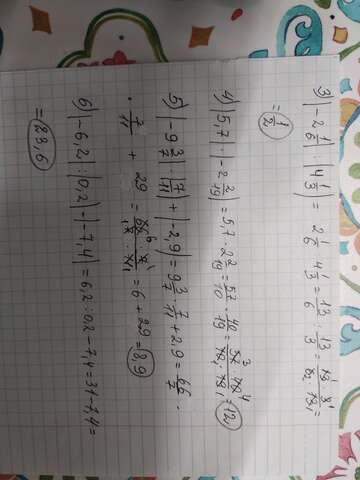 3) |-2 1/6| : |4 1/3| = 2 1/6 : 4 1/3 = 13/6 : 13/3 = 13 · 3/6 · 13 =
= 1/2
4) |5,7| · |-2 2/19| = 5,7 · 2 2/19 = 57/10 · 40/19 = 57 · 40/10 · 19 = 12
5) |-9 3/7| · |7/11| + |-2,9| = 9 3/7 · 7/11 + 2,9 = 66/7 ·
· 7/11 + 2,9 = 66 · 7/7 · 11 = 6 + 2,9 = 8,9
6) |-6,2| : |0,2| - |-7,4| = 6,2 : 0,2 - 7,4 = 31 - 7,4 =
= 23,6